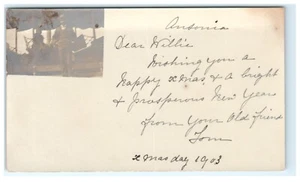 Ansonia
Dear Willie
Wishing you a
happy xmas & a bright
& prosperous New Years
from your old friend
Tom
xmas day 1903